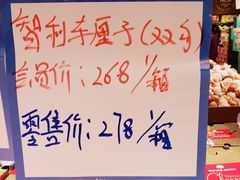 智利车厘子(双J)
会员价:268/箱
零售价:278/箱